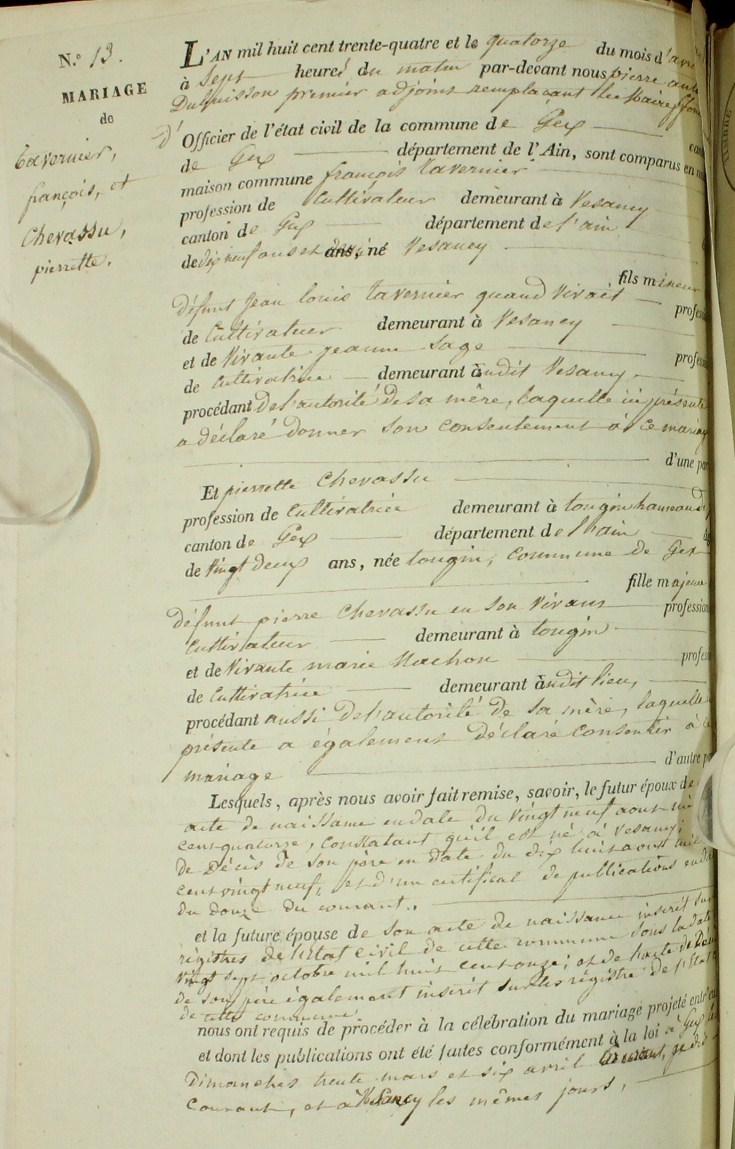 N.° 13.
MARIAGE
de
tavernier,
françois, et
Chevassu,
pierrette.
L'AN mil huit cent trente-quatre et le quatorze du mois d'avri
à Sept heures du matin par-devant nous pierre
Dubuisson premier adjoint remplaçant le Maire
d'Officier de l'état civil de la commune de Gex
de Gex département de l'Ain, sont comparus en
maison commune françois tavernier
profession de Cultivateur demeurant à Vesancy
canton de Gex département de l'ain
de dix neuf ans et ans, né Vesancy
fils mineur
défunt Jean louis tavernier quand Vivait profes
de Cultivateur demeurant à Vesancy
et de Vivante jeanne Sage profes
de Cultivatrice demeurant à udit Vesancy
procédant de l'autorité de sa mère, laquelle ici présente
a déclaré donner son consentement à ce mariag
d'une par
Et pierrette Chevassu
profession de Cultivatrice demeurant à tougin hameau d
canton de Gex département de l'ain
de Vingt deux ans, née tougin, commune de Gex
fille majeure
défunt pierre Chevassu en son Vivant profession
Cultivateur demeurant à tougin
et de Vivante marie Machon profes
de Cultivatrice demeurant à udit lieu,
procédant aussi de l'autorité de sa mère, laquelle
présente a également déclaré Consentir à c
mariage d'autre p
Lesquels, après nous avoir fait remise, savoir, le futur époux de
acte de naissance en date du Vingt neuf aout mil
cent quatorze, Constatant qu'il est né à Vesancy;
de Décès de son père en date du dix huit aout mil
cent vingt neuf, et d'un certificat de publications en da
du douze du courant.
et la future épouse de son acte de naissance inscrit sur
régistres de l'état civil de cette commune sous la date
Vingt sept octobre mil huit cent onze; et de l'acte de Décè
de son père également inscrit sur les régistre de l'Etat
de cette commune
nous ont requis de procéder à la célébration du mariage projeté entr'eu
et dont les publications ont été faites conformément à la loi à Gex les
Dimanches trente mars et six avril
Courant, et à Vesancy les mêmes jours,
TIMBRE